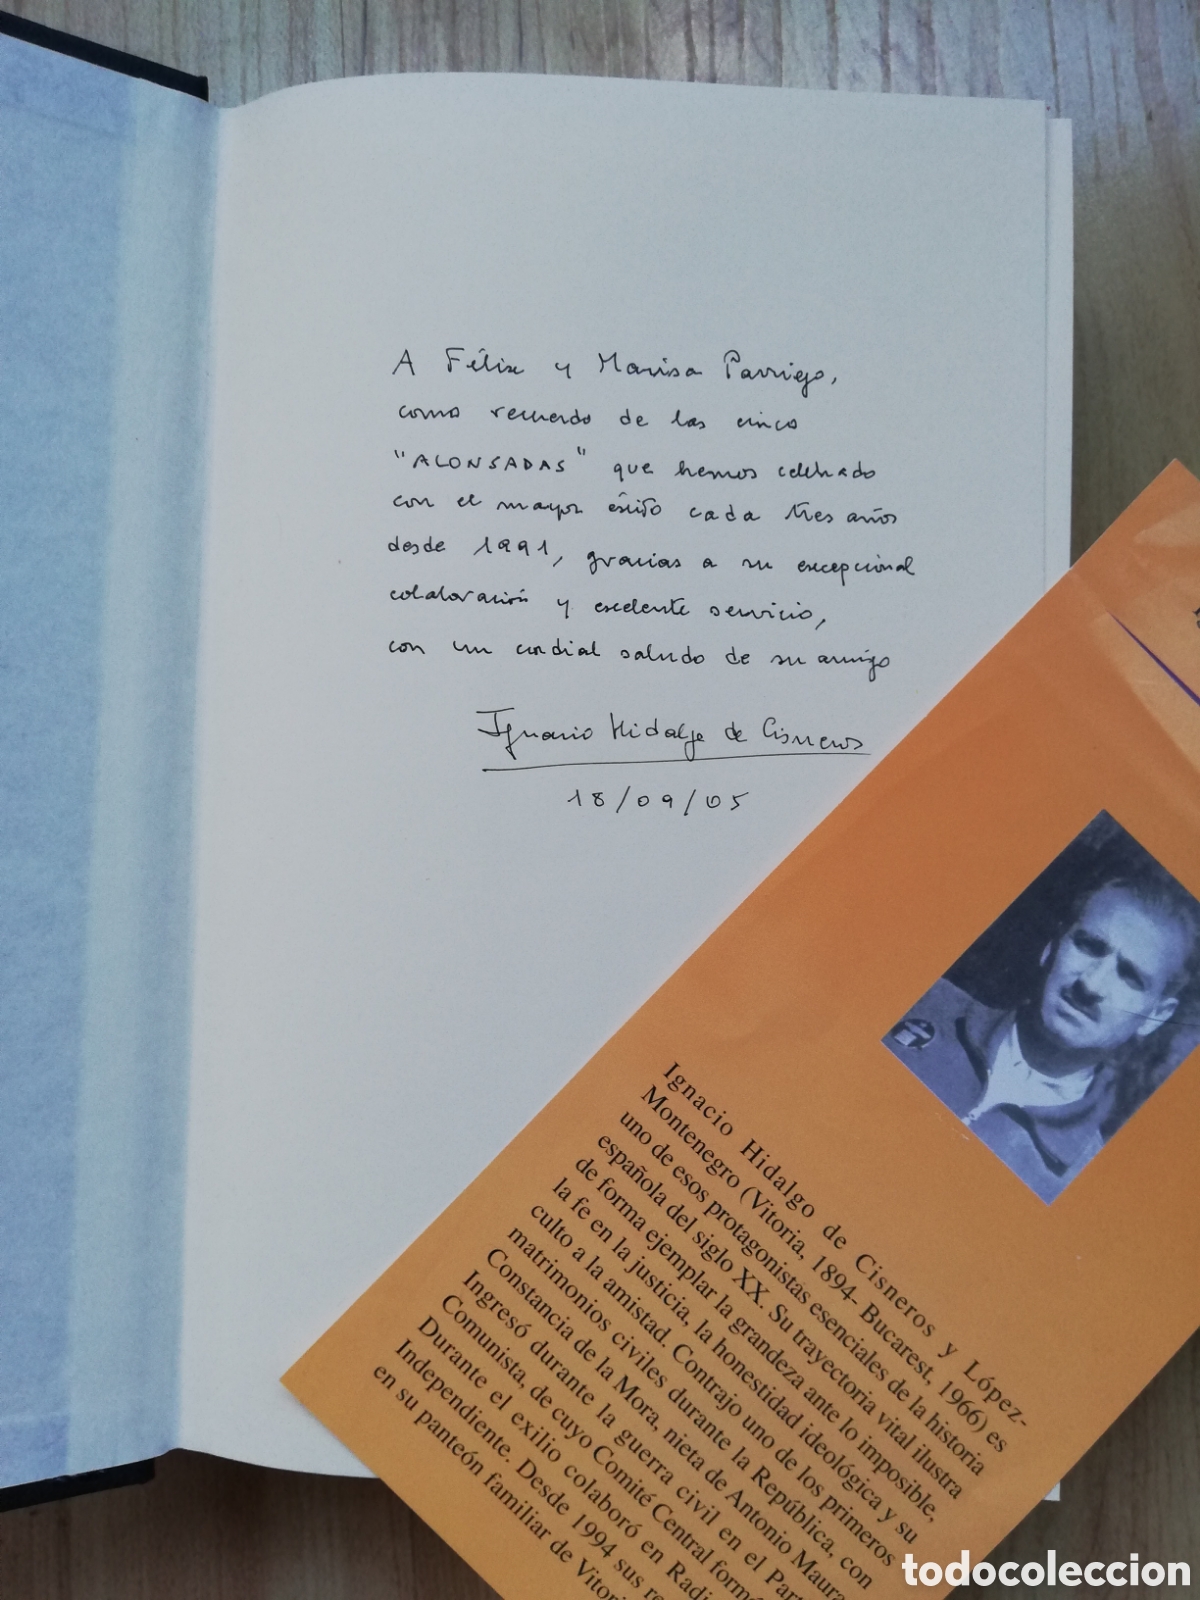 A Félix y Marisa Parriego,
como recuerdo de las cinco
"ALONSADAS" que hemos celebrado
con el mayor éxito cada tres años
desde 1991, gracias a su excepcional
colaboración y excelente servicio,
con un cordial saludo de su amigo
Ignacio Hidalgo de Cisneros
18/09/05
Ignacio Hidalgo de Cisneros y López-
Montenegro (Vitoria, 1894- Bucarest, 1966) es
uno de esos protagonistas esenciales de la historia
española del siglo XX. Su trayectoria vital ilustra
de forma ejemplar la grandeza ante lo imposible,
la fe en la justicia, la honestidad ideológica y su
culto a la amistad. Contrajo uno de los primeros
matrimonios civiles durante la República, con
Constancia de la Mora, nieta de Antonio Maura
Ingresó durante la guerra civil en el Part
Comunista, de cuyo Comité Central formó
Durante el exilio colaboró en Radi
Independiente. Desde 1994 sus re
en su panteón familiar de Vitori
todocoleccion